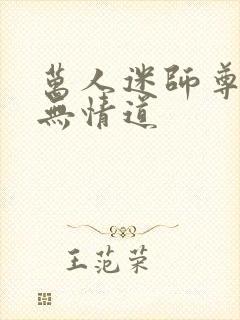 萬人迷師尊
無情道
王范荣